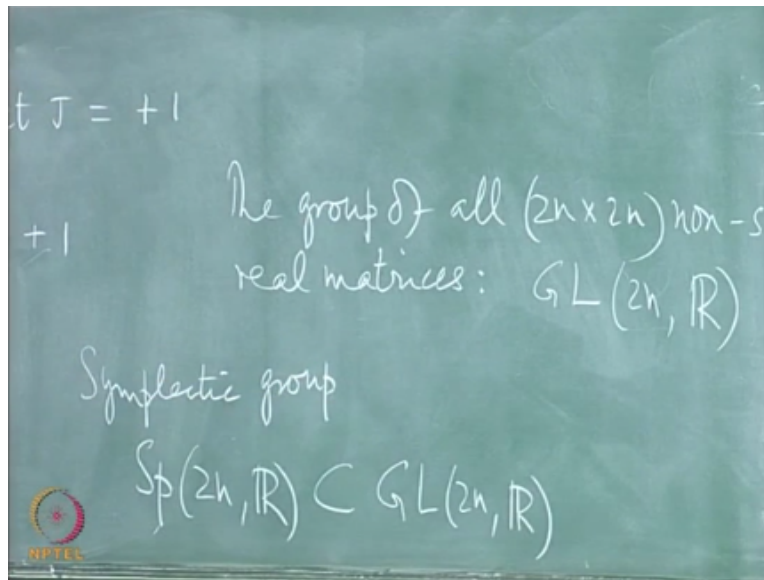 t J = +1
The group of all (2n×2n) non-s
+1
real matrices: GL(2n, ℝ)
Symplectic group
Sp(2n, ℝ) ⊂ GL(2n, ℝ)
NPTEL